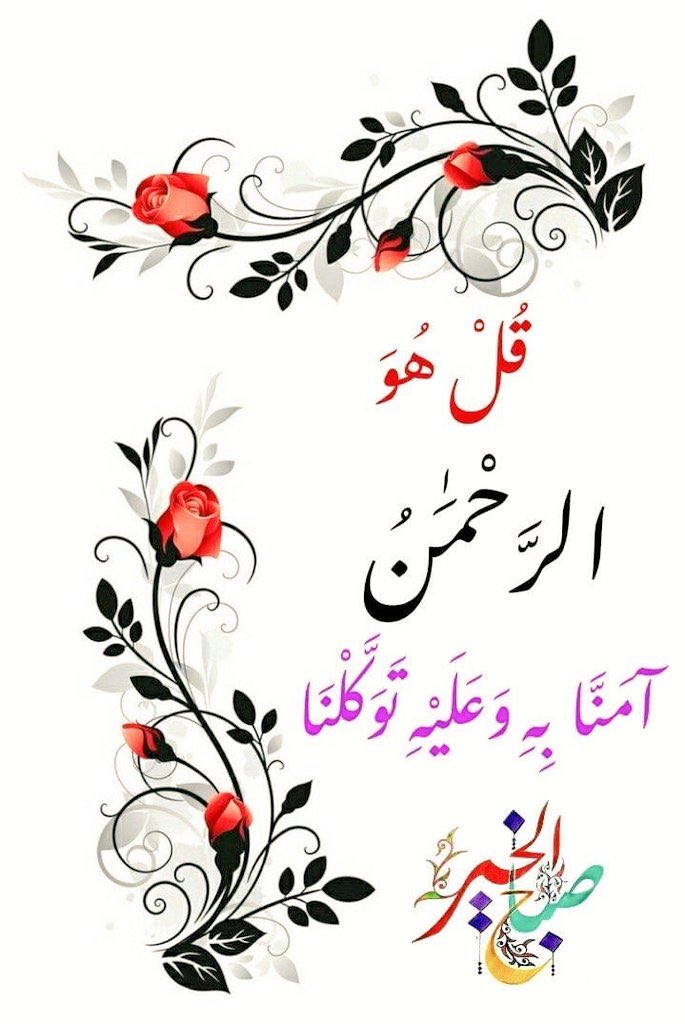 قُلْ هُوَ
الرَّحْمَٰنُ
آمَنَّا بِهِ وَعَلَيْهِ تَوَكَّلْنَا
صباح الخير